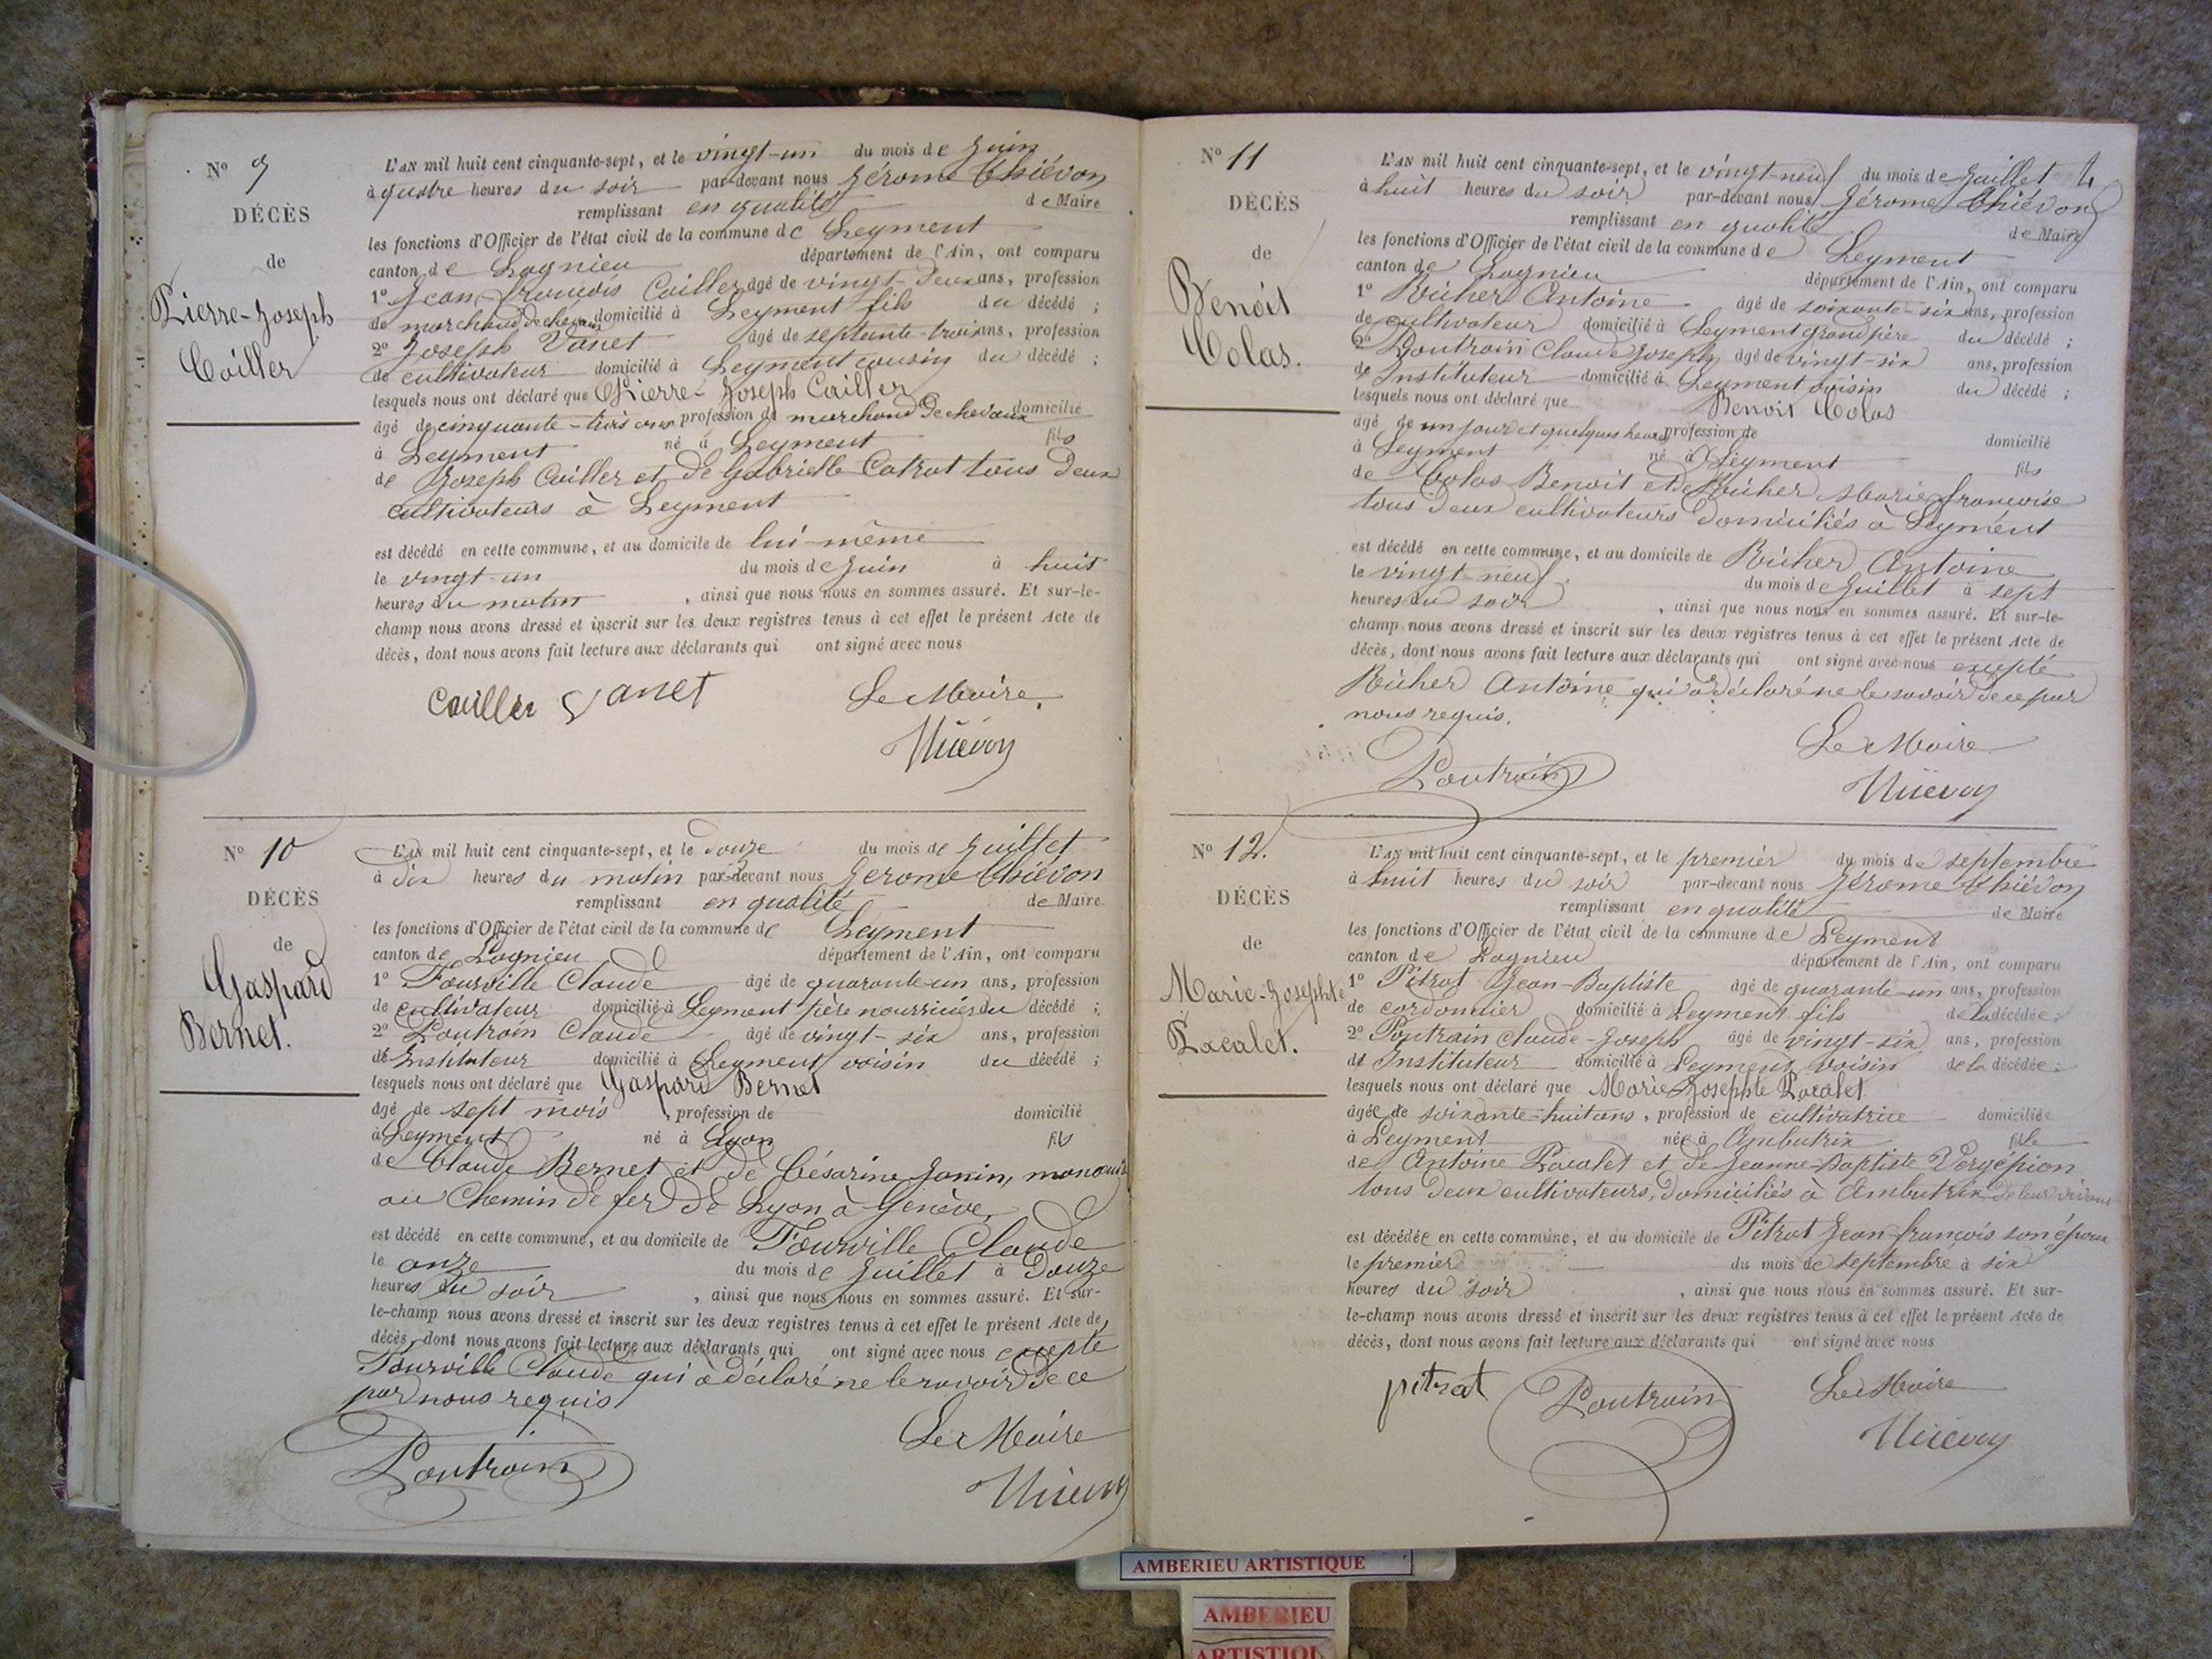 Nº 9
DÉCÈS
de
Pierre-Joseph
Cailler
L'AN mil huit cent cinquante-sept, et le vingt-un du mois de Juin
à quatre heures du soir par-devant nous Jérome Chiévon
remplissant en qualité de Maire
les fonctions d'Officier de l'état civil de la commune de Leyment
canton de Lagnieu département de l'Ain, ont comparu
1º Jean-françois Cailler âgé de vingt-deux ans, profession
de marchand de chevaux domicilié à Leyment fils du décédé ;
2º Joseph Vanet âgé de septante-trois ans, profession
de cultivateur domicilié à Leyment cousin du décédé ;
lesquels nous ont déclaré que Pierre-Joseph Cailler
âgé de cinquante-trois ans profession de marchand de chevaux domicilié
à Leyment né à Leyment fils
de Joseph Cailler et de Gabrielle Catrat tous deux
cultivateurs à Leyment
est décédé en cette commune, et au domicile de lui-même
le vingt-un du mois de Juin à huit
heures du matin , ainsi que nous nous en sommes assuré. Et sur-le-
champ nous avons dressé et inscrit sur les deux registres tenus à cet effet le présent Acte de
décès, dont nous avons fait lecture aux déclarants qui ont signé avec nous
Cailler Vanet Le Maire
Chiévon
Nº 10
DÉCÈS
de
Gaspard
Bernet.
L'AN mil huit cent cinquante-sept, et le douze du mois de Juillet
à dix heures du matin par-devant nous Jérome Chiévon
remplissant en qualité de Maire
les fonctions d'Officier de l'état civil de la commune de Leyment
canton de Lagnieu département de l'Ain, ont comparu
1º Tourville Claude âgé de quarante-un ans, profession
de cultivateur domicilié à Leyment père nourricier du décédé ;
2º Poutrain Claude âgé de vingt-six ans, profession
de Instituteur domicilié à Leyment voisin du décédé ;
lesquels nous ont déclaré que Gaspard Bernet
âgé de sept mois , profession de domicilié
à Leyment né à Lyon fils
de Claude Bernet et de Césarine Janin,
au Chemin de fer de Lyon à Genève,
est décédé en cette commune, et au domicile de Tourville Claude
le onze du mois de Juillet à douze
heures du soir , ainsi que nous nous en sommes assuré. Et sur-
le-champ nous avons dressé et inscrit sur les deux registres tenus à cet effet le présent Acte de
décès, dont nous avons fait lecture aux déclarants qui ont signé avec nous excepté
Tourville Claude qui a déclaré ne le savoir de ce
par nous requis
Poutrain Le Maire
Chiévon
Nº 11
DÉCÈS
de
Benoit
Colas.
L'AN mil huit cent cinquante-sept, et le vingt-neuf du mois de Juillet
à huit heures du soir par-devant nous Jérome Chiévon
remplissant en qualité de Maire
les fonctions d'Officier de l'état civil de la commune de Leyment
canton de Lagnieu département de l'Ain, ont comparu
1º Bûcher Antoine âgé de soixante-six ans, profession
de cultivateur domicilié à Leyment grand père du décédé ;
2º Poutrain Claude Joseph âgé de vingt-six ans, profession
de Instituteur domicilié à Leyment voisin du décédé ;
lesquels nous ont déclaré que Benoit Colas
âgé de un jour et quelques heures profession de domicilié
à Leyment né à Leyment fils
de Colas Benoit et de Bûcher Marie françoise
tous deux cultivateurs domiciliés à Leyment
est décédé en cette commune, et au domicile de Bûcher Antoine
le vingt-neuf du mois de Juillet à sept
heures du soir , ainsi que nous nous en sommes assuré. Et sur-le-
champ nous avons dressé et inscrit sur les deux registres tenus à cet effet le présent Acte de
décès, dont nous avons fait lecture aux déclarants qui ont signé avec nous excepté
Bûcher Antoine qui a déclaré ne le savoir de ce par
nous requis.
Poutrain Le Maire
Chiévon
Nº 12.
DÉCÈS
de
Marie-Josephte
Pacalet.
L'AN mil huit cent cinquante-sept, et le premier du mois de septembre
à huit heures du soir par-devant nous Jérome Chiévon
remplissant en qualité de Maire
les fonctions d'Officier de l'état civil de la commune de Leyment
canton de Lagnieu département de l'Ain, ont comparu
1º Pitrat Jean-Baptiste âgé de quarante-un ans, profession
de cordonnier domicilié à Leyment fils de la décédée ;
2º Poutrain Claude-Joseph âgé de vingt-six ans, profession
de Instituteur domicilié à Leyment voisin de la décédée ;
lesquels nous ont déclaré que Marie Josephte Pacalet
âgée de soixante-huit ans, profession de cultivatrice domiciliée
à Leyment née à Ambutrix fille
de Antoine Pacalet et de Jeanne-Baptiste Vergépion
tous deux cultivateurs, domiciliés à Ambutrix de leur vivant
est décédée en cette commune, et au domicile de Pitrat Jean-françois son époux
le premier du mois de septembre à six
heures du soir , ainsi que nous nous en sommes assuré. Et sur-
le-champ nous avons dressé et inscrit sur les deux registres tenus à cet effet le présent Acte de
décès, dont nous avons fait lecture aux déclarants qui ont signé avec nous
pitrat Poutrain Le Maire
Chiévon
AMBERIEU ARTISTIQUE
AMBERIEU
ARTISTIQ